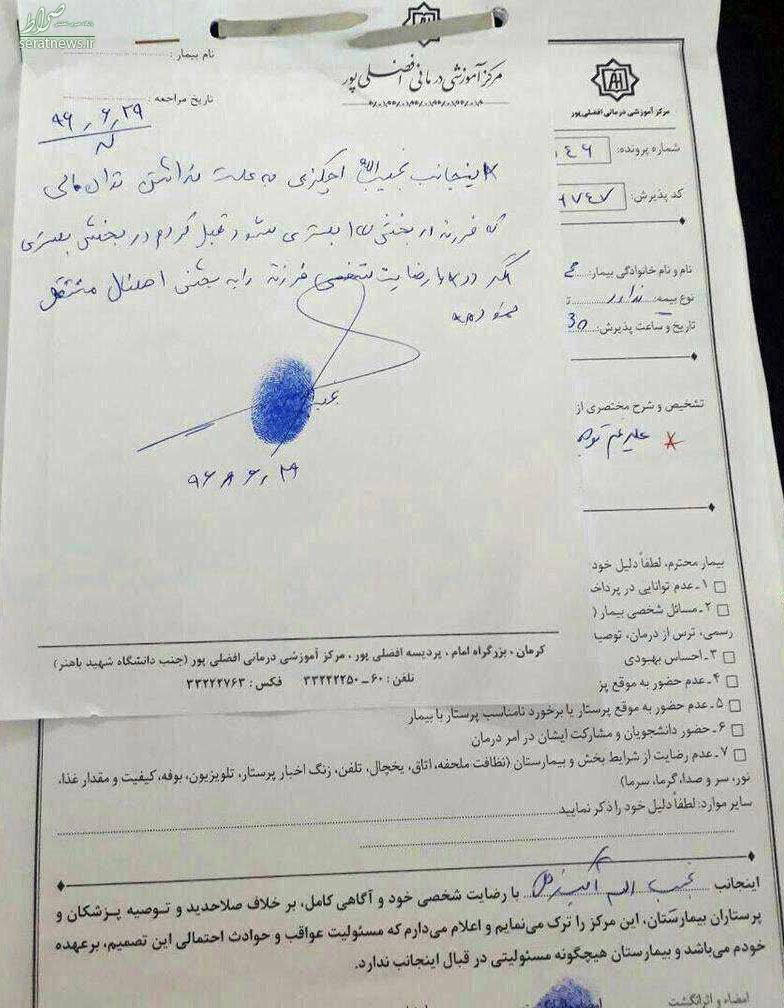 صراط
seratnews.ir
مرکز آموزشی درمانی افضلی پور
نام بیمار :
تاریخ مراجعه :
۹۶٫۶٫۲۹
اینجانب نجیب الله به علت نداشتن توان مالی
که فرزند بستری شود قبول کردم در بخش بستری
با رضایت شخصی فرزند را به بخش اطفال منتقل
نمودم
۹۶٫۶٫۲۹
کرمان ، بزرگراه امام ، پردیسه افضلی پور ، مرکز آموزشی درمانی افضلی پور (جنب دانشگاه شهید باهنر)
تلفن : ۶۰ ـ ۳۳۲۲۲۲۵۰ فکس : ۳۳۲۲۲۷۶۳
مرکز آموزشی درمانی افضلی پور
شماره پرونده:
کد پذیرش: ۹۷۴۷
نام و نام خانوادگی بیمار:
نوع بیمه: ندارد
تاریخ و ساعت پذیرش:
تشخیص و شرح مختصری از
علیرغم
بیمار محترم، لطفاً دلیل خود
۱ـ عدم توانایی در پرداخ
۲ـ مسائل شخصی بیمار (
رسمی، ترس از درمان، توصی
۳ـ احساس بهبودی
۴ـ عدم حضور به موقع پز
۵ـ عدم حضور به موقع پرستار یا برخورد نامناسب پرستار با بیمار
۶ـ حضور دانشجویان و مشارکت ایشان در امر درمان
۷ـ عدم رضایت از شرایط بخش و بیمارستان (نظافت ملحفه، اتاق، یخچال، تلفن، زنگ اخبار پرستار، تلویزیون، بوفه، کیفیت و مقدار غذا،
نور، سر و صدا، گرما، سرما)
سایر موارد: لطفاً دلیل خود را ذکر نمایید
اینجانب نجیب الله با رضایت شخصی خود و آگاهی کامل، بر خلاف صلاحدید و توصیه پزشکان و
پرستاران بیمارستان، این مرکز را ترک می‌نمایم و اعلام می‌دارم که مسئولیت عواقب و حوادث احتمالی این تصمیم، بر عهده
خودم می‌باشد و بیمارستان هیچگونه مسئولیتی در قبال اینجانب ندارد.
امضاء و اثر انگشت